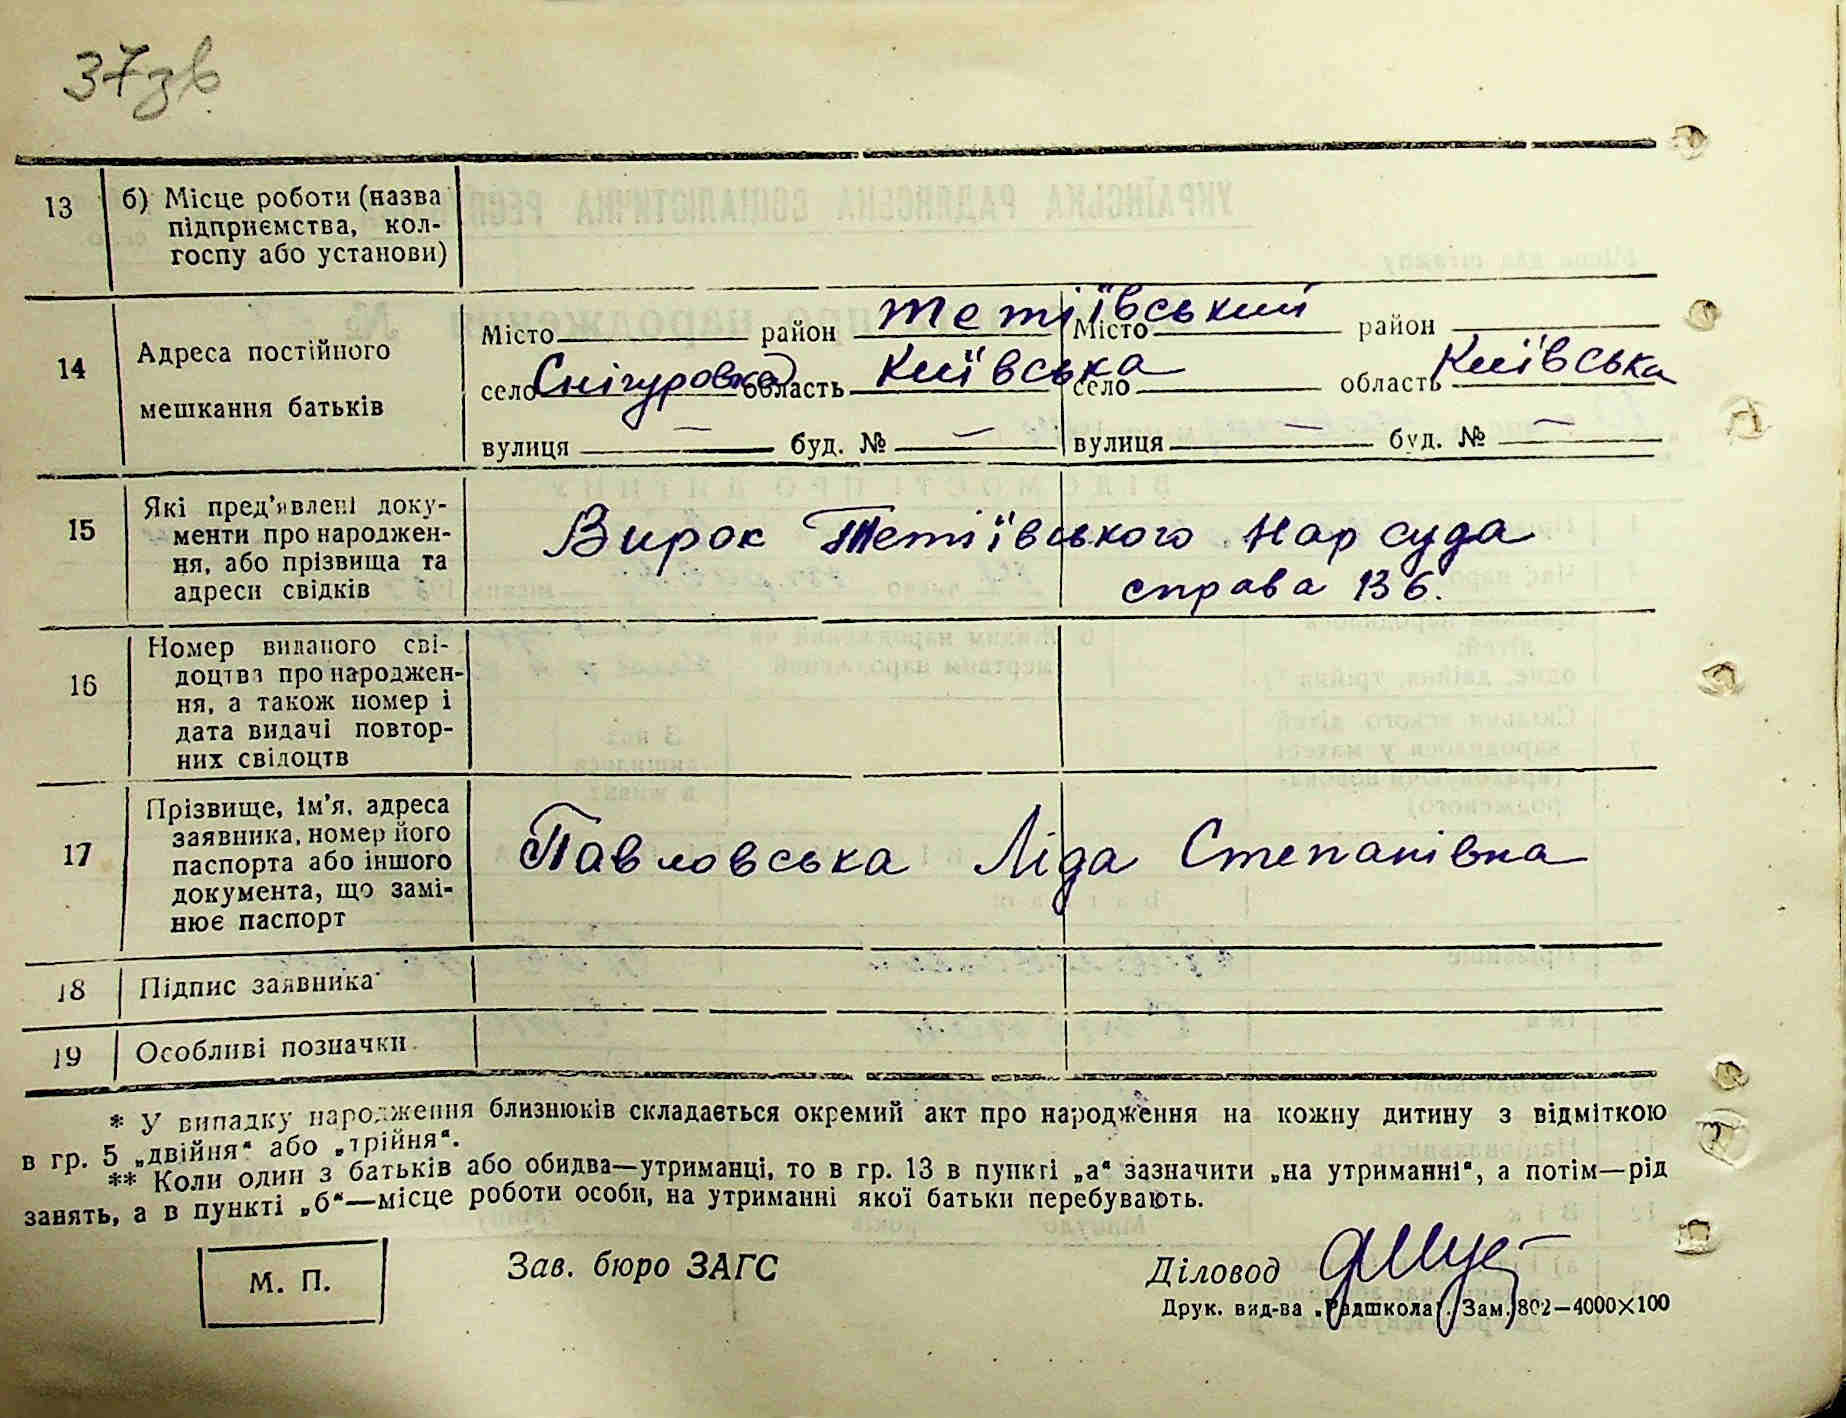 37зв
13 б) Місце роботи (назва
підприємства, кол-
госпу або установи)
14 Адреса постійного
мешкання батьків
Місто район Тетіївський Місто район
село Снігуровка область Київська село область Київська
вулиця — буд. № — вулиця — буд. № —
15 Які пред'явлені доку-
менти про народжен-
ня, або прізвища та
адреси свідків
Вирок Тетіївського Нар суда
справа 136.
16 Номер виданого сві-
доцтва про народжен-
ня, а також номер і
дата видачі повтор-
них свідоцтв
17 Прізвище, ім'я, адреса
заявника, номер його
паспорта або іншого
документа, що замі-
нює паспорт
Павловська Ліда Степанівна
18 Підпис заявника
19 Особливі позначки
* У випадку народження близнюків складається окремий акт про народження на кожну дитину з відміткою
в гр. 5 „двійня" або „трійня".
** Коли один з батьків або обидва—утриманці, то в гр. 13 в пункті „а" зазначити „на утриманні", а потім—рід
занять, а в пункті „б"—місце роботи особи, на утриманні якої батьки перебувають.
М. П.
Зав. бюро ЗАГС
Діловод
Друк. вид-ва „Радшкола". Зам. 802—4000×100